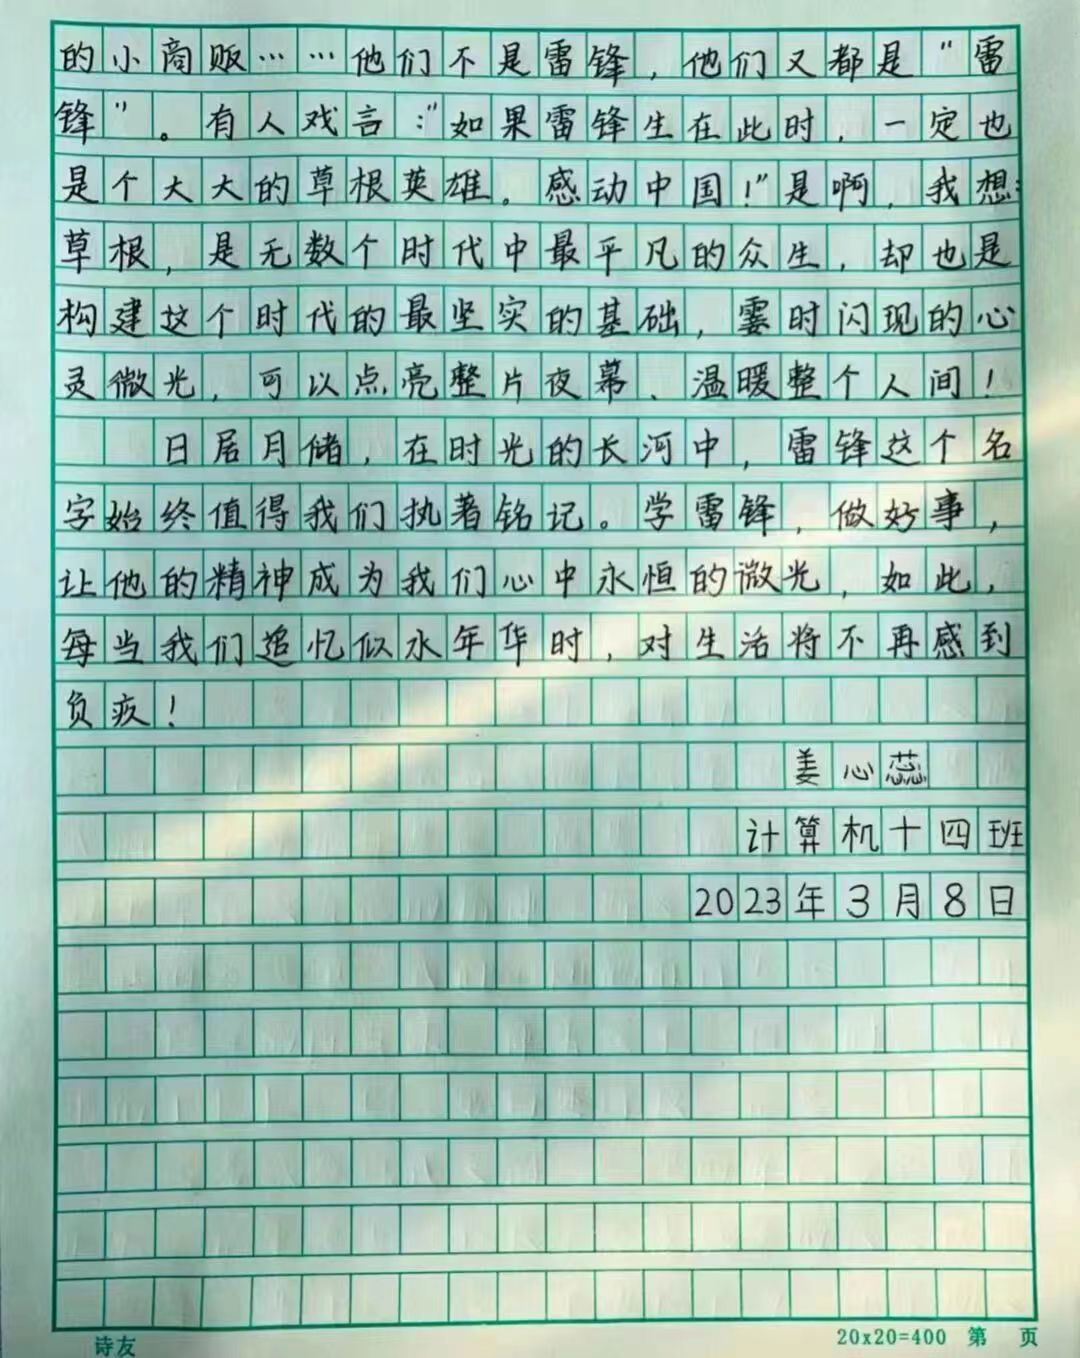 的小商贩……他们不是雷锋，他们又都是“雷
锋”。有人戏言：“如果雷锋生在此时，一定也
是个大大的草根英雄。感动中国！”是啊，我想：
草根，是无数个时代中最平凡的众生，却也是
构建这个时代的最坚实的基础，霎时闪现的心
灵微光，可以点亮整片夜幕、温暖整个人间！
日居月储，在时光的长河中，雷锋这个名
字始终值得我们执著铭记。学雷锋，做好事，
让他的精神成为我们心中永恒的微光，如此，
每当我们追忆似水年华时，对生活将不再感到
负疚！
姜心蕊
计算机十四班
2023年3月8日
诗友
20x20=400 第 页